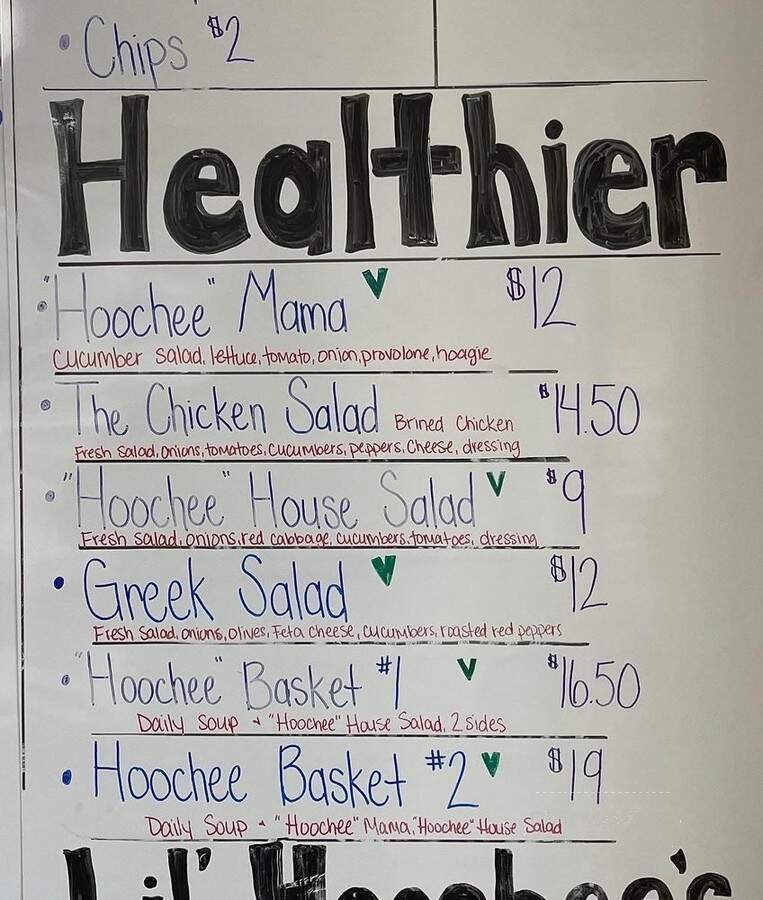 • Chips $2
Healthier
• "Hoochee" Mama V $12
Cucumber Salad, lettuce, tomato, onion, provolone, hoagie
• The Chicken Salad Brined Chicken $14.50
Fresh Salad, onions, tomatoes, cucumbers, peppers, cheese, dressing
• "Hoochee" House Salad V $9
Fresh Salad, onions, red cabbage, cucumbers, tomatoes, dressing
• Greek Salad V $12
Fresh Salad, onions, olives, Feta cheese, cucumbers, roasted red peppers
• "Hoochee" Basket #1 V $16.50
Daily Soup + "Hoochee" House Salad, 2 sides
• Hoochee Basket #2 V $19
Daily Soup + "Hoochee" Mama, "Hoochee" House Salad
Lil' Hoochee's